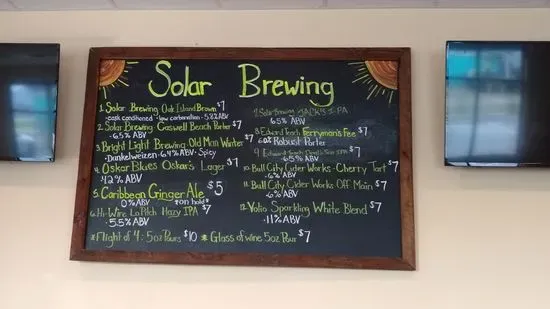 Solar Brewing
1. Solar Brewing Oak Island Brown $7
• cask conditioned • low carbonation • 5.8% ABV
2. Solar Brewing Caswell Beach Porter $7
• 6.5% ABV
3. Bright Light Brewing Old Man Winter $7
• Dunkelweizen • 6.4% ABV • Spicy
4. Oskar Blues Oskar's Lager $7
4.2% ABV
5. Caribbean Ginger Ale $5
0% ABV *on hold*
6. Hi-Wire Lo Pitch Hazy IPA $7
• 5.5% ABV
* Flight of 4: 5oz Pours $10 * Glass of wine 5oz Pour $7
7. Solar Brewing JACK'S IPA
6.5% ABV
8. Edward Teach Ferryman's Fee $7
Robust Porter
9. Edward Teach $7
6.5% ABV
10. Bull City Cider Works - Cherry Tart $7
• 6% ABV
11. Bull City Cider Works Off Main $7
• 6% ABV
12. Volio Sparkling White Blend $7
• 11% ABV